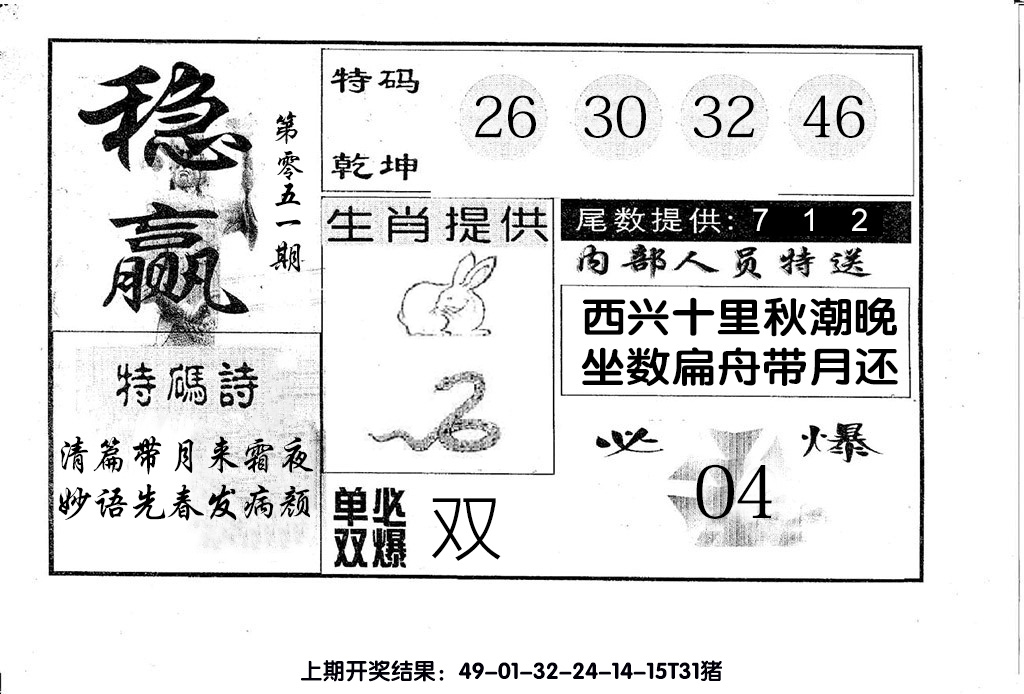 稳赢
第零五一期
特码
乾坤
26 30 32 46
生肖提供
尾数提供: 7 1 2
内部人员特送
西兴十里秋潮晚
坐数扁舟带月还
特碼詩
清篇带月来霜夜
妙语先春发病颜
必爆
04
单双必爆
双
上期开奖结果：49-01-32-24-14-15T31猪